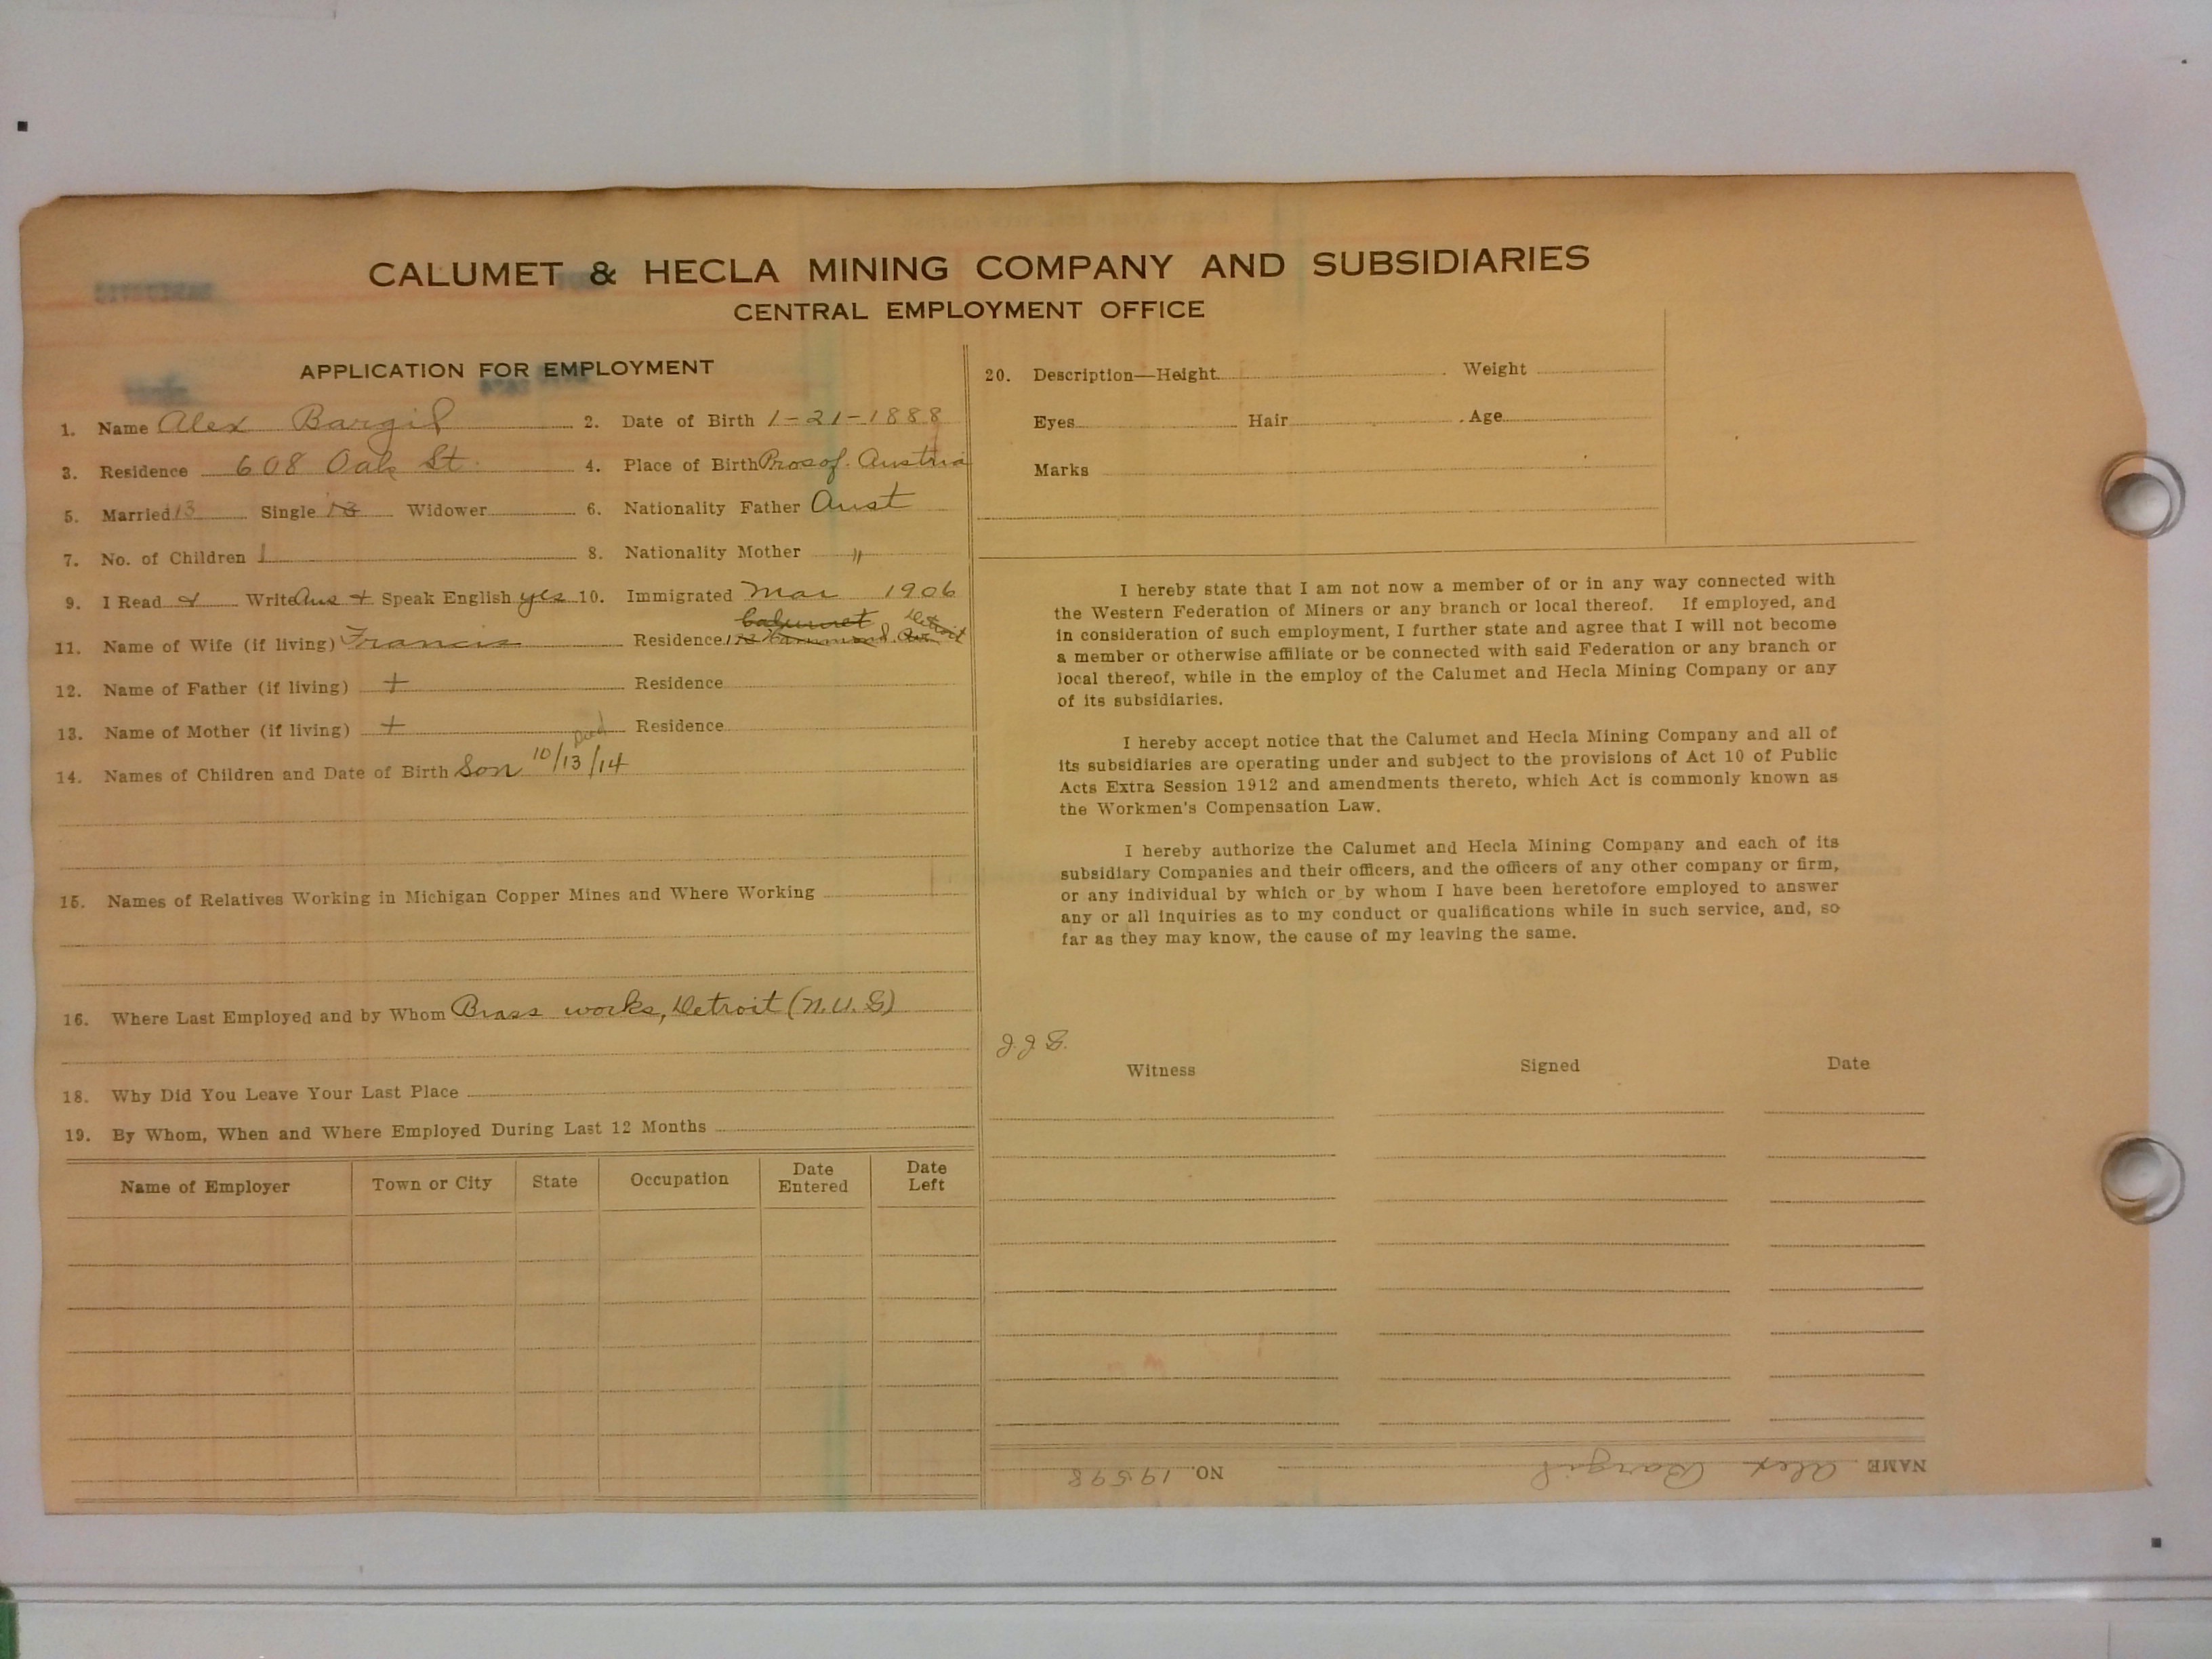 CALUMET & HECLA MINING COMPANY AND SUBSIDIARIES
CENTRAL EMPLOYMENT OFFICE
APPLICATION FOR EMPLOYMENT
1. Name Alex Bargil 2. Date of Birth 1-21-1888
3. Residence 608 Oak St. 4. Place of Birth Austria
5. Married 13 Single Widower 6. Nationality Father Aust
7. No. of Children 1 8. Nationality Mother "
9. I Read & Write Aus + Speak English yes 10. Immigrated Mar 1906
Calumet Detroit
11. Name of Wife (if living) Francis Residence Hammond Ave
12. Name of Father (if living) + Residence
13. Name of Mother (if living) + Residence
Dead
14. Names of Children and Date of Birth Son 10/13/14
15. Names of Relatives Working in Michigan Copper Mines and Where Working
16. Where Last Employed and by Whom Brass works, Detroit (N.U.G)
18. Why Did You Leave Your Last Place
19. By Whom, When and Where Employed During Last 12 Months
Name of Employer Town or City State Occupation Date Entered Date Left
20. Description—Height Weight
Eyes Hair Age
Marks
I hereby state that I am not now a member of or in any way connected with
the Western Federation of Miners or any branch or local thereof. If employed, and
in consideration of such employment, I further state and agree that I will not become
a member or otherwise affiliate or be connected with said Federation or any branch or
local thereof, while in the employ of the Calumet and Hecla Mining Company or any
of its subsidiaries.
I hereby accept notice that the Calumet and Hecla Mining Company and all of
its subsidiaries are operating under and subject to the provisions of Act 10 of Public
Acts Extra Session 1912 and amendments thereto, which Act is commonly known as
the Workmen's Compensation Law.
I hereby authorize the Calumet and Hecla Mining Company and each of its
subsidiary Companies and their officers, and the officers of any other company or firm,
or any individual by which or by whom I have been heretofore employed to answer
any or all inquiries as to my conduct or qualifications while in such service, and, so
far as they may know, the cause of my leaving the same.
J.J.S.
Witness Signed Date
NAME Alex Bargil NO. 19598